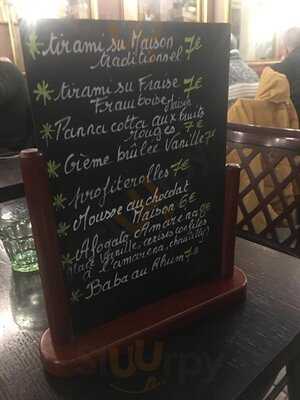 tirami su Maison
traditionnel 7€
tirami su Fraise
Framboise Maison 7€
Panna cotta aux fruits
Rouges 7€
Crème brûlée Vanille 7€
profiterolles 7€
Mousse au chocolat
Maison 6€
Afogato Amaréna 9€
glace Vanille, cerises confites
à l'amaréna, chantilly
Baba au Rhum 7€